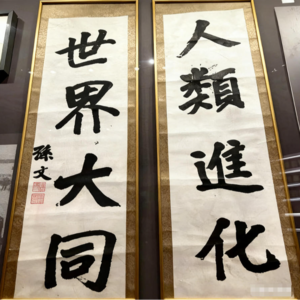 人類進化
世界大同
孫文